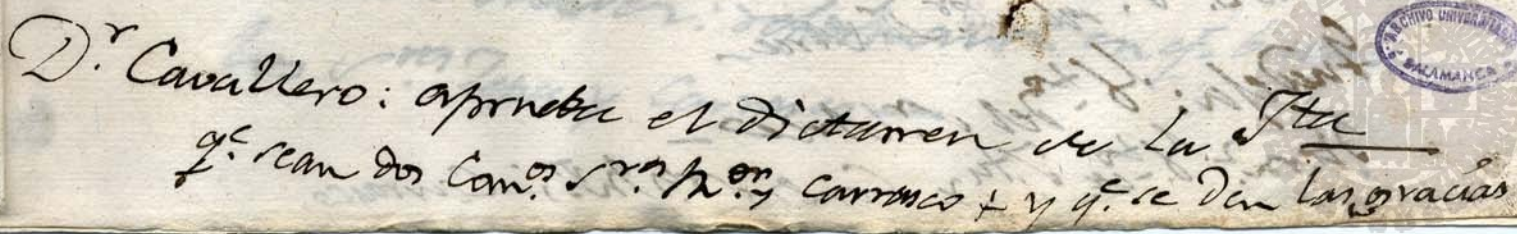 Dr. Cavallero: aprueba el dictamen de la Jta
qe. sean dos Comos. Sres. y Carrasco + y qe. se den las gracias
ARCHIVO UNIVERSITARIO
SALAMANCA